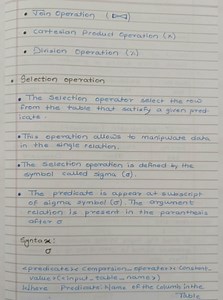 • Join Operation (⋈)
• Cartesian Product Operation (×)
• Division Operation (÷)
• Selection operation
• The Selection operator select the row
from the table that satisfy a given pred-
icate.
• This operation allows to manipulate data
in the single relation.
• The Selection operation is defined by the
symbol called sigma (σ).
• The predicate is appear at subscript
of sigma symbol (σ). The argument
relation is present in the parenthesis
after σ
Syntax:
σ
<predicate> <Comparison_operator> <Constant_
value> (<input_table_name>)
Where Predicate: Name of the Column in the
Table